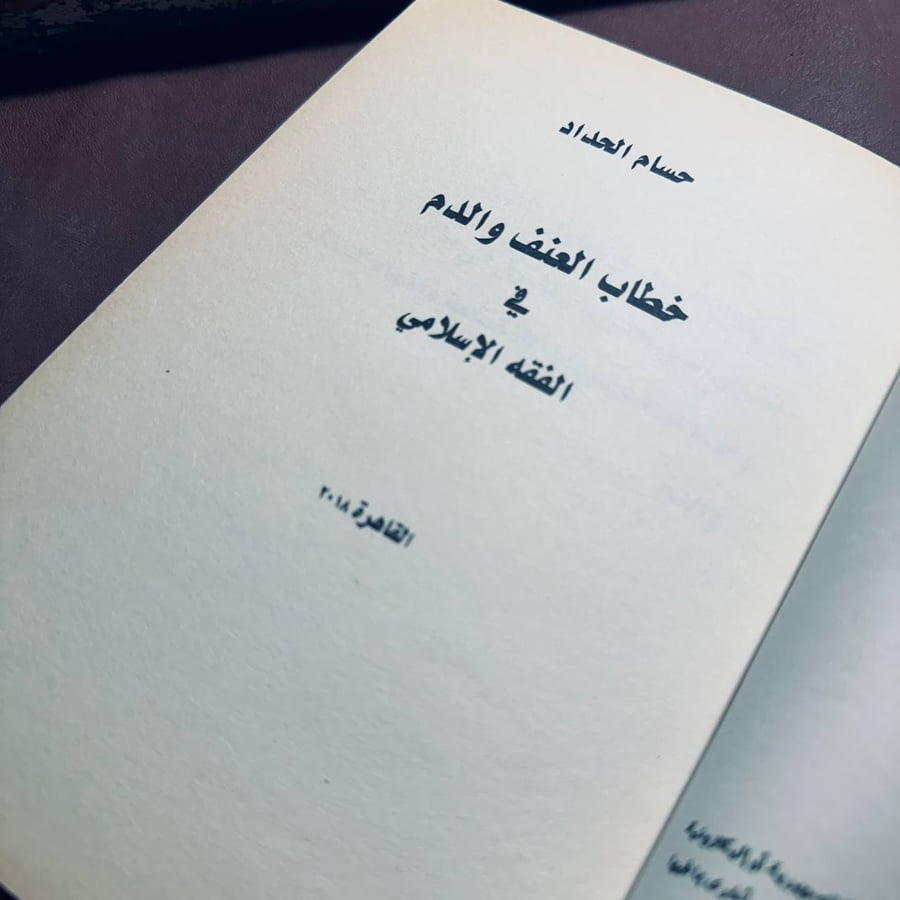 حسام الحداد
خطاب العنف والدم
في
الفقه الإسلامي
القاهرة ٢٠١٨